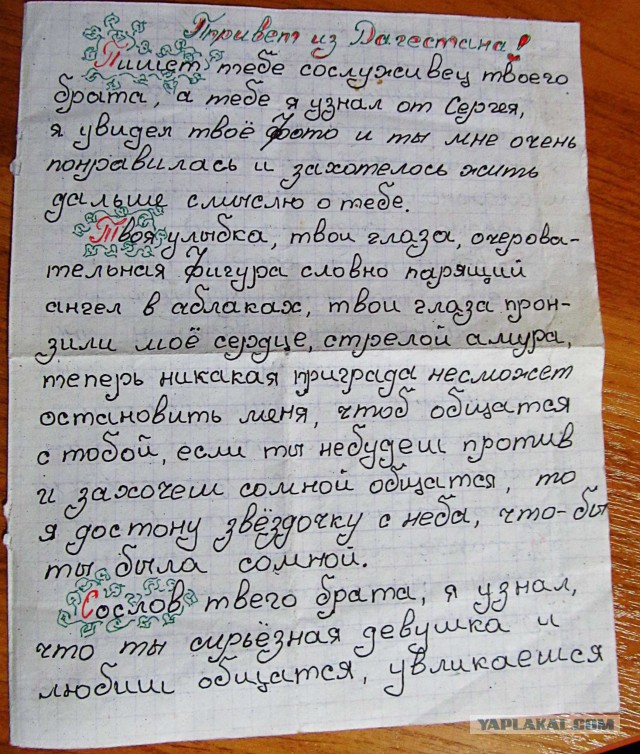 Привет из Дагестана!
Пишет тебе сослуживец твоего
брата, а тебе я узнал от Сергея,
я увидел твоё фото и ты мне очень
понравилась и захотелось жить
дальше с мыслю о тебе.
Твоя улыбка, твои глаза, очерова-
тельная фигура словно парящий
ангел в аблаках, твои глаза прон-
зили моё сердце, стрелой амура,
теперь никакая приграда несможет
остановить меня, чтоб общатся
с тобой, если ты небудеш против
и захочеш сомной общатся, то
я достону звёздочку с неба, что-бы
ты была сомной.
Сослов твего брата, я узнал,
что ты сирьёзная девушка и
любиш общатся, увликаешся
YAPLAKAL.COM